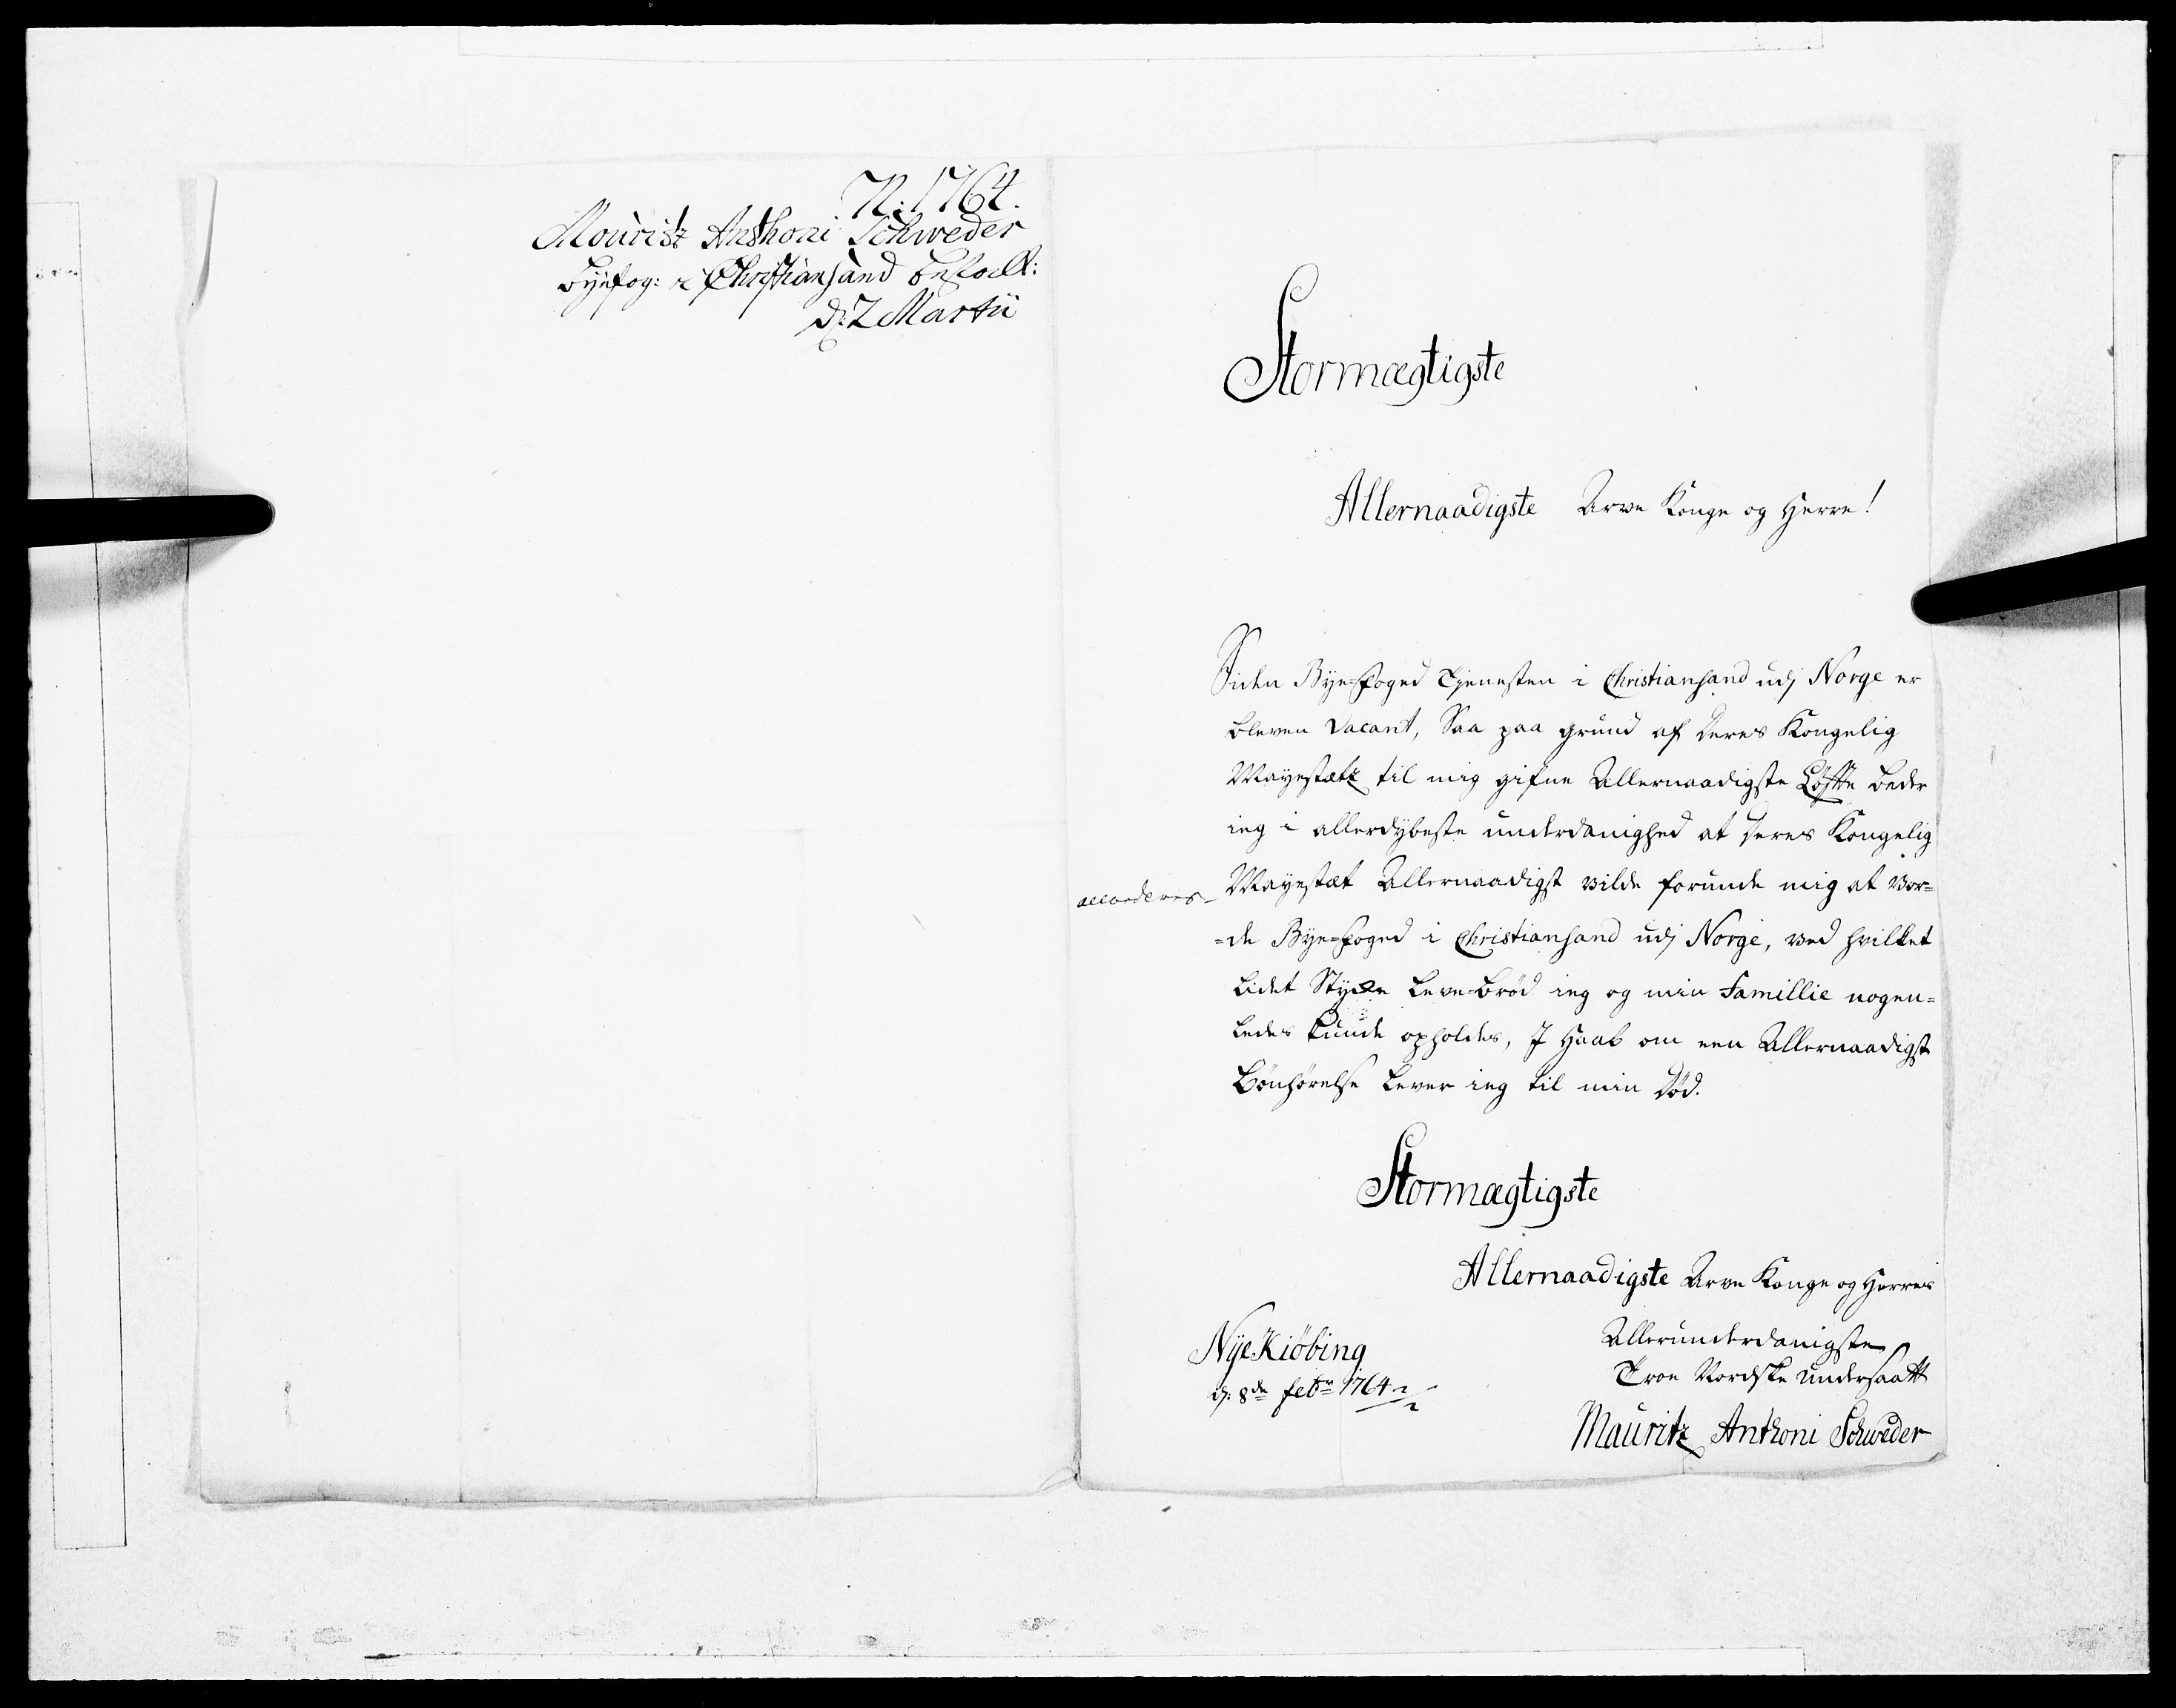 N: 1764.
Mouritz Anthoni Schweder
byefog: i Christiansand bestall:
d: 2 Martii
Stormægtigste
Allernaadigste Arve Konge og Herre!
Siden Bye-foged Tjenesten i Christiansand udj Norge er
bleven vacant, Saa paa grund af Deres Kongelig
Mayestætz til mig gifne Allernaadigste Løffte beder
ieg i allerdybeste underdanighed at Deres Kongelig
accorderes
Mayestæt Allernaadigst vilde forunde mig at vor=
=de Bye-foged i Christiansand udj Norge, ved hvilket
lidet Stykke leve-brød ieg og min Famillie nogen=
ledes kunde opholdes, I Haab om een Allernaadigst
bønhørelse lever ieg til min Død.
Stormægtigste
Allernaadigste Arve Konge og Herres
Nye Kiöbing
d: 8de febr 1764
Allerunderdanigste
Troe Nordske undersaatt
Mauritz Anthoni Schweder